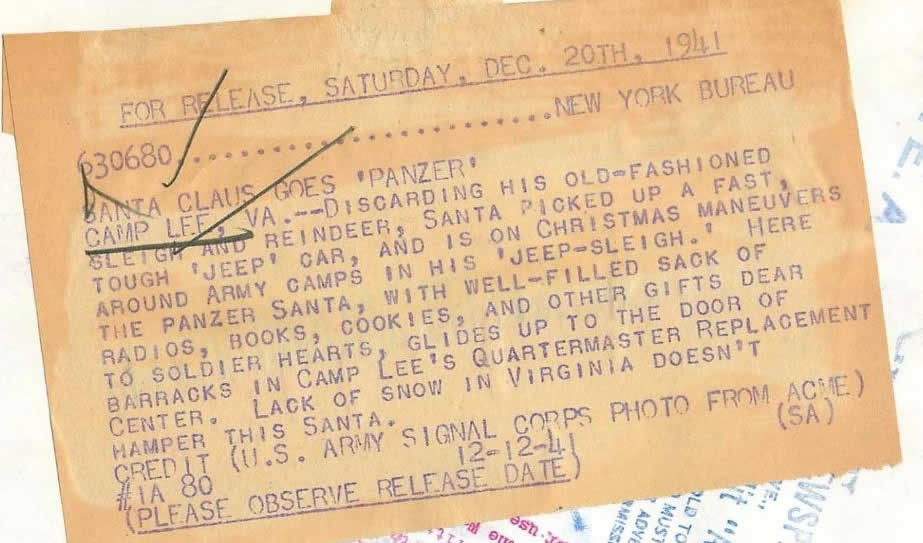 FOR RELEASE, SATURDAY, DEC. 20TH, 1941
630680..............................NEW YORK BUREAU
SANTA CLAUS GOES 'PANZER'
CAMP LEE, VA.--DISCARDING HIS OLD-FASHIONED
SLEIGH AND REINDEER, SANTA PICKED UP A FAST,
TOUGH 'JEEP' CAR, AND IS ON CHRISTMAS MANEUVERS
AROUND ARMY CAMPS IN HIS 'JEEP-SLEIGH.' HERE
THE PANZER SANTA, WITH WELL-FILLED SACK OF
RADIOS, BOOKS, COOKIES, AND OTHER GIFTS DEAR
TO SOLDIER HEARTS, GLIDES UP TO THE DOOR OF
BARRACKS IN CAMP LEE'S QUARTERMASTER REPLACEMENT
CENTER. LACK OF SNOW IN VIRGINIA DOESN'T
HAMPER THIS SANTA.
CREDIT (U.S. ARMY SIGNAL CORPS PHOTO FROM ACME)
#1A 80 12-12-41 (SA)
(PLEASE OBSERVE RELEASE DATE)
E.A
use
OLD TO
MUST